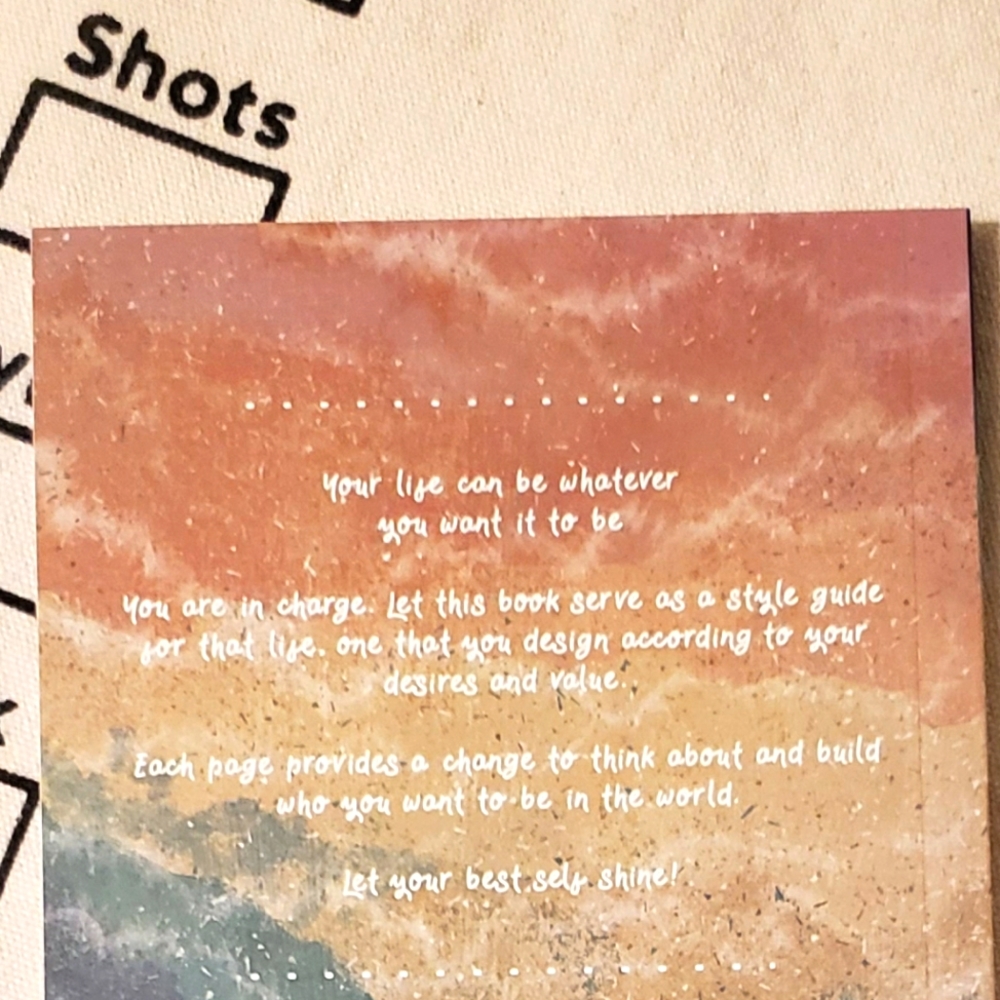 Shots
Your life can be whatever
you want it to be
You are in charge. Let this book serve as a style guide
for that life. one that you design according to your
desires and value.
Each page provides a change to think about and build
who you want to be in the world.
Let your best self shine!